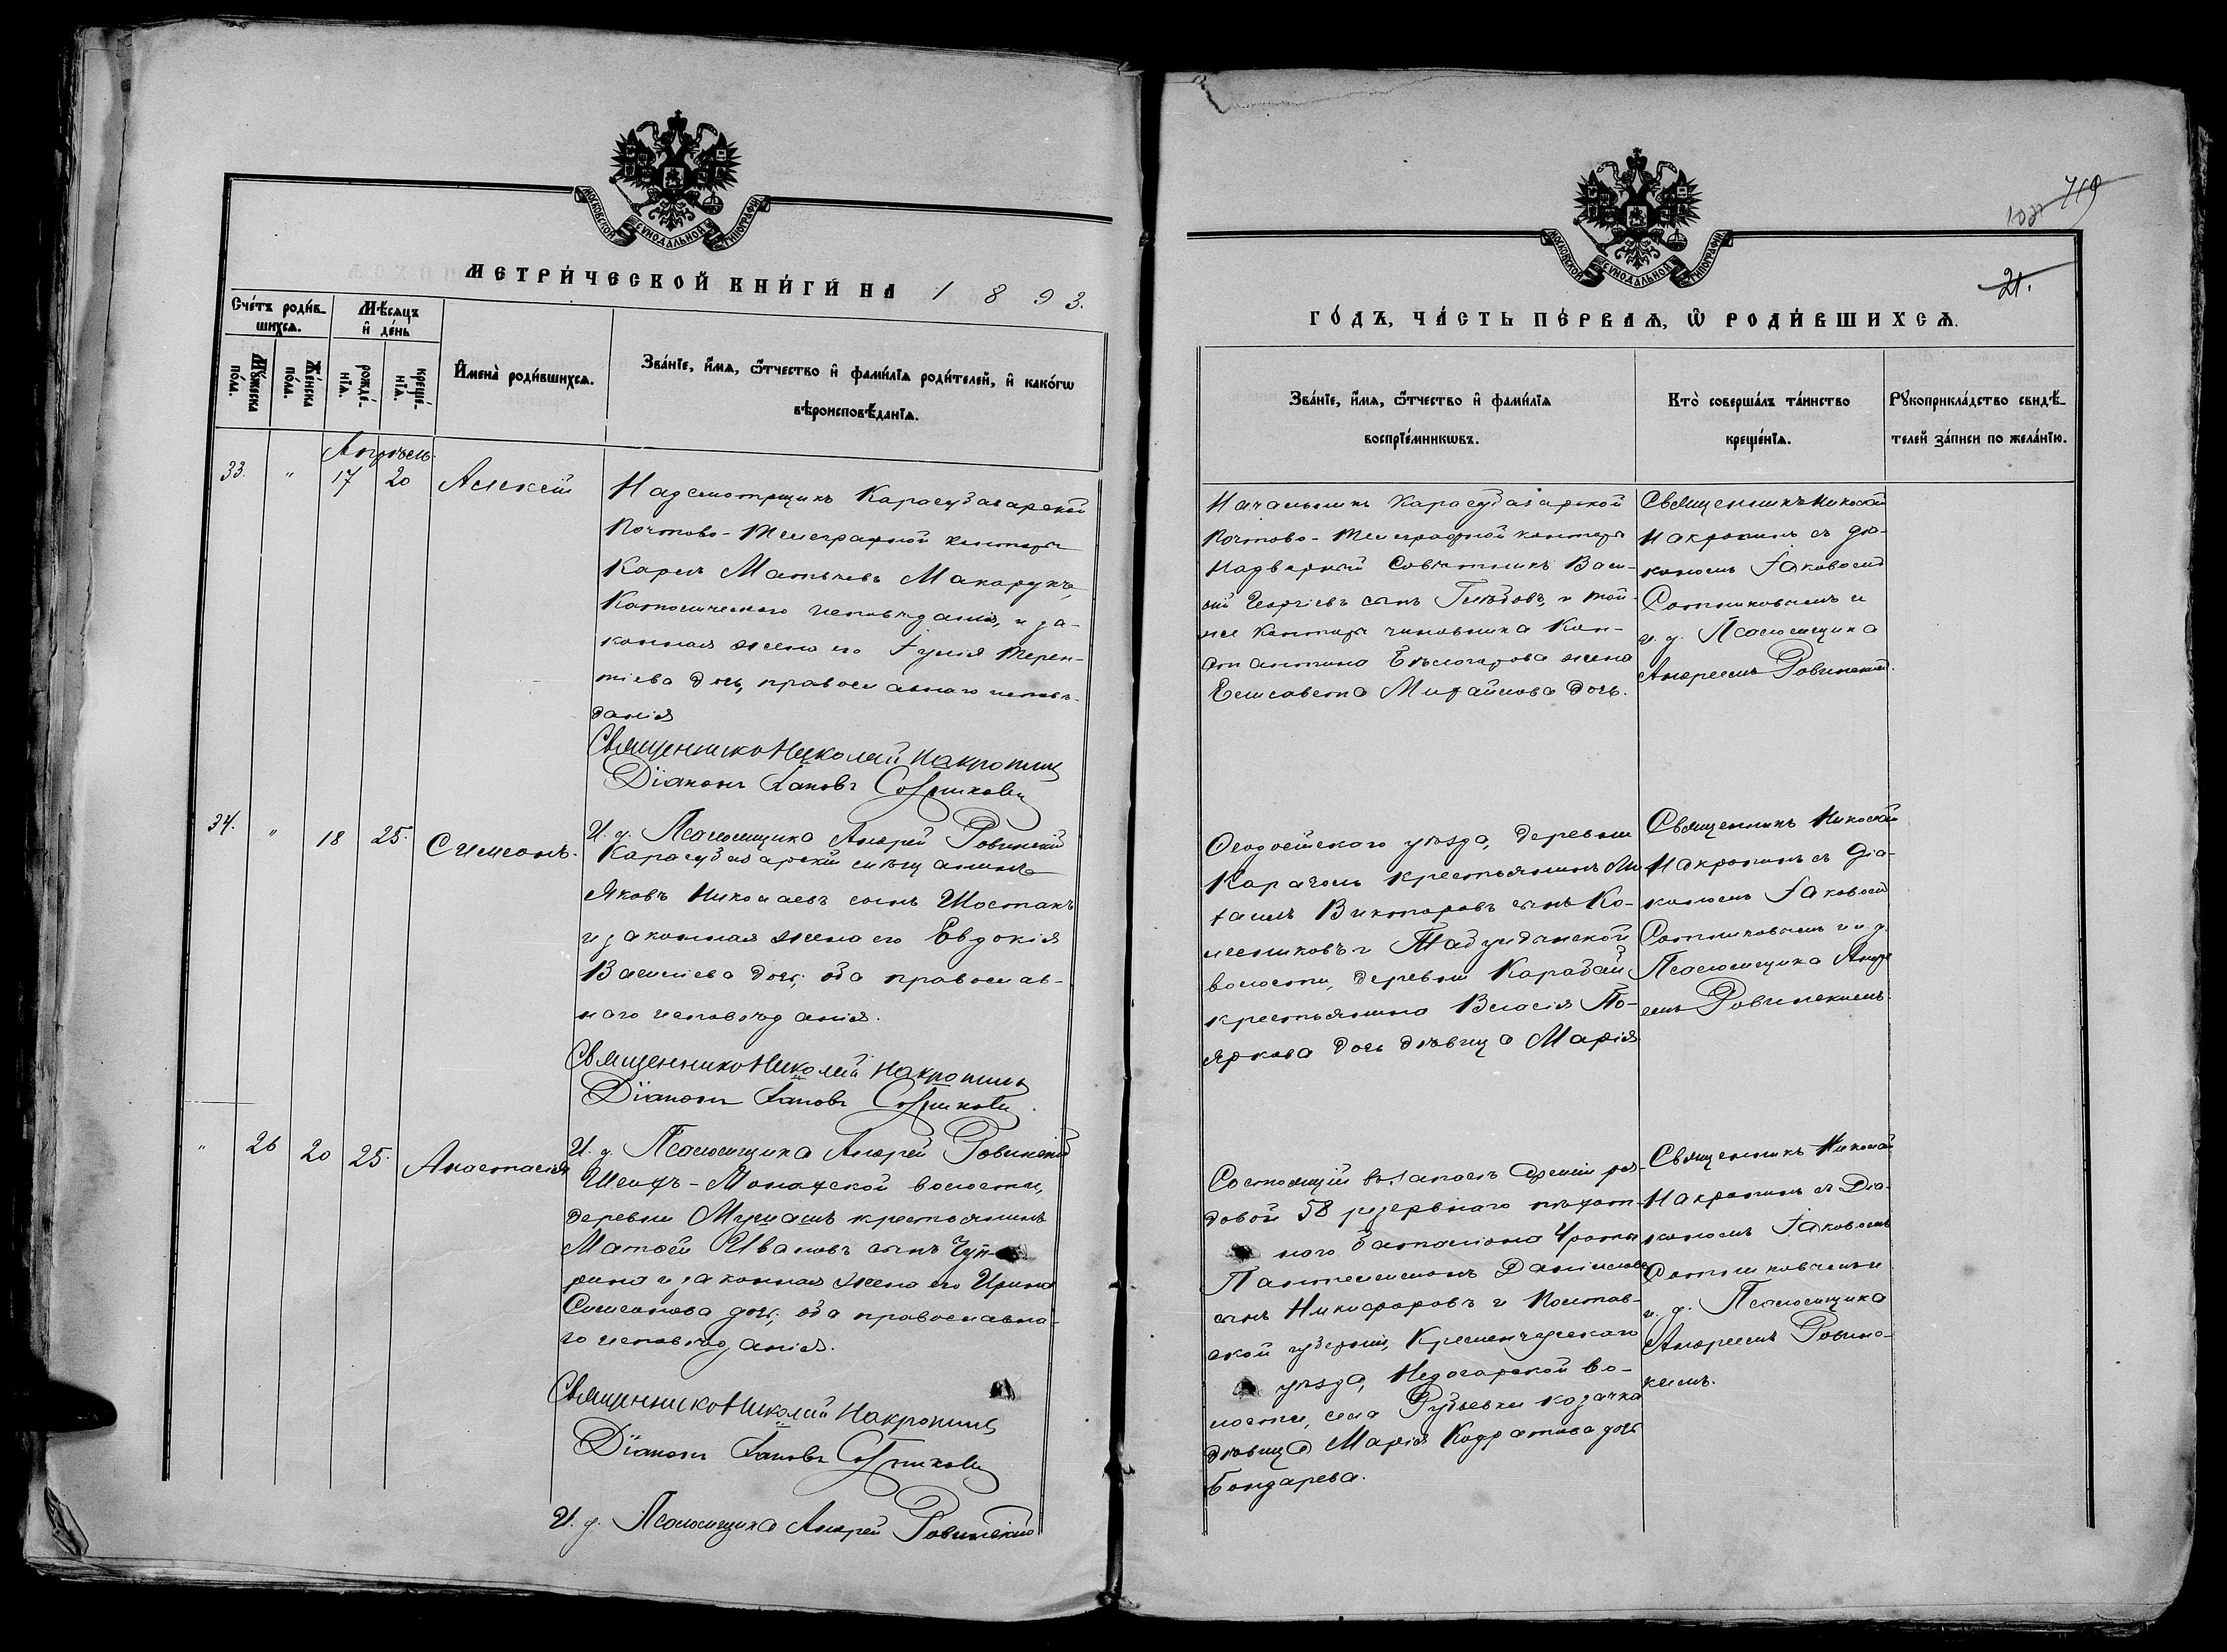 МОСКОВСКОЙ СѴНОДАЛЬНОЙ ТИПОГРАФІИ
МЕТРИ́ЧЕСКОЙ КНИ́ГИ НА 1893.
Сче́тъ роди́в-
шихсѧ.
Мѣ́сѧцъ
и҆ де́нь
Мꙋ́жеска
по́ла.
Же́нска
по́ла.
рожде́-
нїѧ.
креще́-
нїѧ.
И҆мена̀ роди́вшихсѧ.
Зва́нїе, и҆́мѧ, ѻ҆́тчество и҆ фами́лїѧ роди́телей, и҆ како́гѡ
вѣроисповѣ́данїѧ.
Апрѣль
33. " 17 20 Алексій
Надсмотрщикъ Карасубазарской
Почтово-телеграфной конторы
Карлъ Матвѣевъ Макарукъ,
Католическаго исповѣданія, и за-
конная жена его Іулія Терен-
тіева дочь, православнаго исповѣ-
данія
Священникъ Николай Накропинъ
Діаконъ Іаковъ Сотниковъ
И. д. Псаломщика Андрей Ровинскій
34. " 18 25. Симеонъ.
Карасубазарскій мѣщанинъ
Яковъ Николаевъ сынъ Шостакъ
и законная жена его Евдокія
Васильева дочь, оба православ-
наго исповѣданія.
Священникъ Николай Накропинъ
Діаконъ Іаковъ Сотниковъ.
И. д. Псаломщика Андрей Ровинскій
" 26 20 25. Анастасія
волости,
деревни крестьянинъ
Матѳей Ивановъ сынъ Чуп-
рина и законная жена его Ирина
Симеонова дочь, оба православна-
го исповѣданія.
Священникъ Николай Накропинъ
Діаконъ Іаковъ Сотниковъ
И. д. Псаломщика Андрей Ровинскій
719
21.
МОСКОВСКОЙ СѴНОДАЛЬНОЙ ТИПОГРАФІИ
ГО́ДЪ, ЧА́СТЬ ПЕ́РВАѦ, Ѽ РОДИ́ВШИХСѦ.
Зва́нїе, и҆́мѧ, ѻ҆́тчество и҆ фами́лїѧ
воспрїе́мникѡвъ.
Кто̀ соверша́лъ та́инство
креще́нїѧ.
Рꙋкоприкла́дство свидѣ́-
телей за́писи по жела́нїю.
Начальникъ Карасубазарской
Почтово-телеграфной конторы
Надворный Совѣтникъ Васи-
лій Георгіевъ сынъ Глѣбовъ, и той-
же конторы чиновника Кон-
стантина Бѣлогарова жена
Елисавета Михайлова дочь.
Священникъ Николай
Накропинъ съ діа-
кономъ Іаковомъ
Сотниковымъ и
и. д. Псаломщика
Андреемъ Ровинскимъ.
Ѳеодосійскаго уѣзда, деревни
Карачоль крестьянинъ Ми-
хаилъ Викторовъ сынъ Ко-
лесниковъ и
волости, деревни Карабай
крестьянина Власія По-
яркова дочь дѣвица Марія
Священникъ Николай
Накропинъ съ діа-
кономъ Іаковомъ
Сотниковымъ и и. д.
Псаломщика Андре
емъ Ровинскимъ.
Состоящій въ запасѣ арміи ря-
довой 58 резервнаго пѣхот-
наго баталіона 4 роты
Пантелеимонъ Даніиловъ
сынъ Никифоровъ и Полтав-
ской губерніи, Кременчугскаго
уѣзда, Недогарской во-
лости, села Рублевки козачка
дѣвица Марія Кодратова дочь
Бондарева.
Священникъ Николай
Накропинъ съ Діа-
кономъ Іаковомъ
Сотниковымъ и
и. д. Псаломщика
Андреемъ Ровинс-
кимъ.